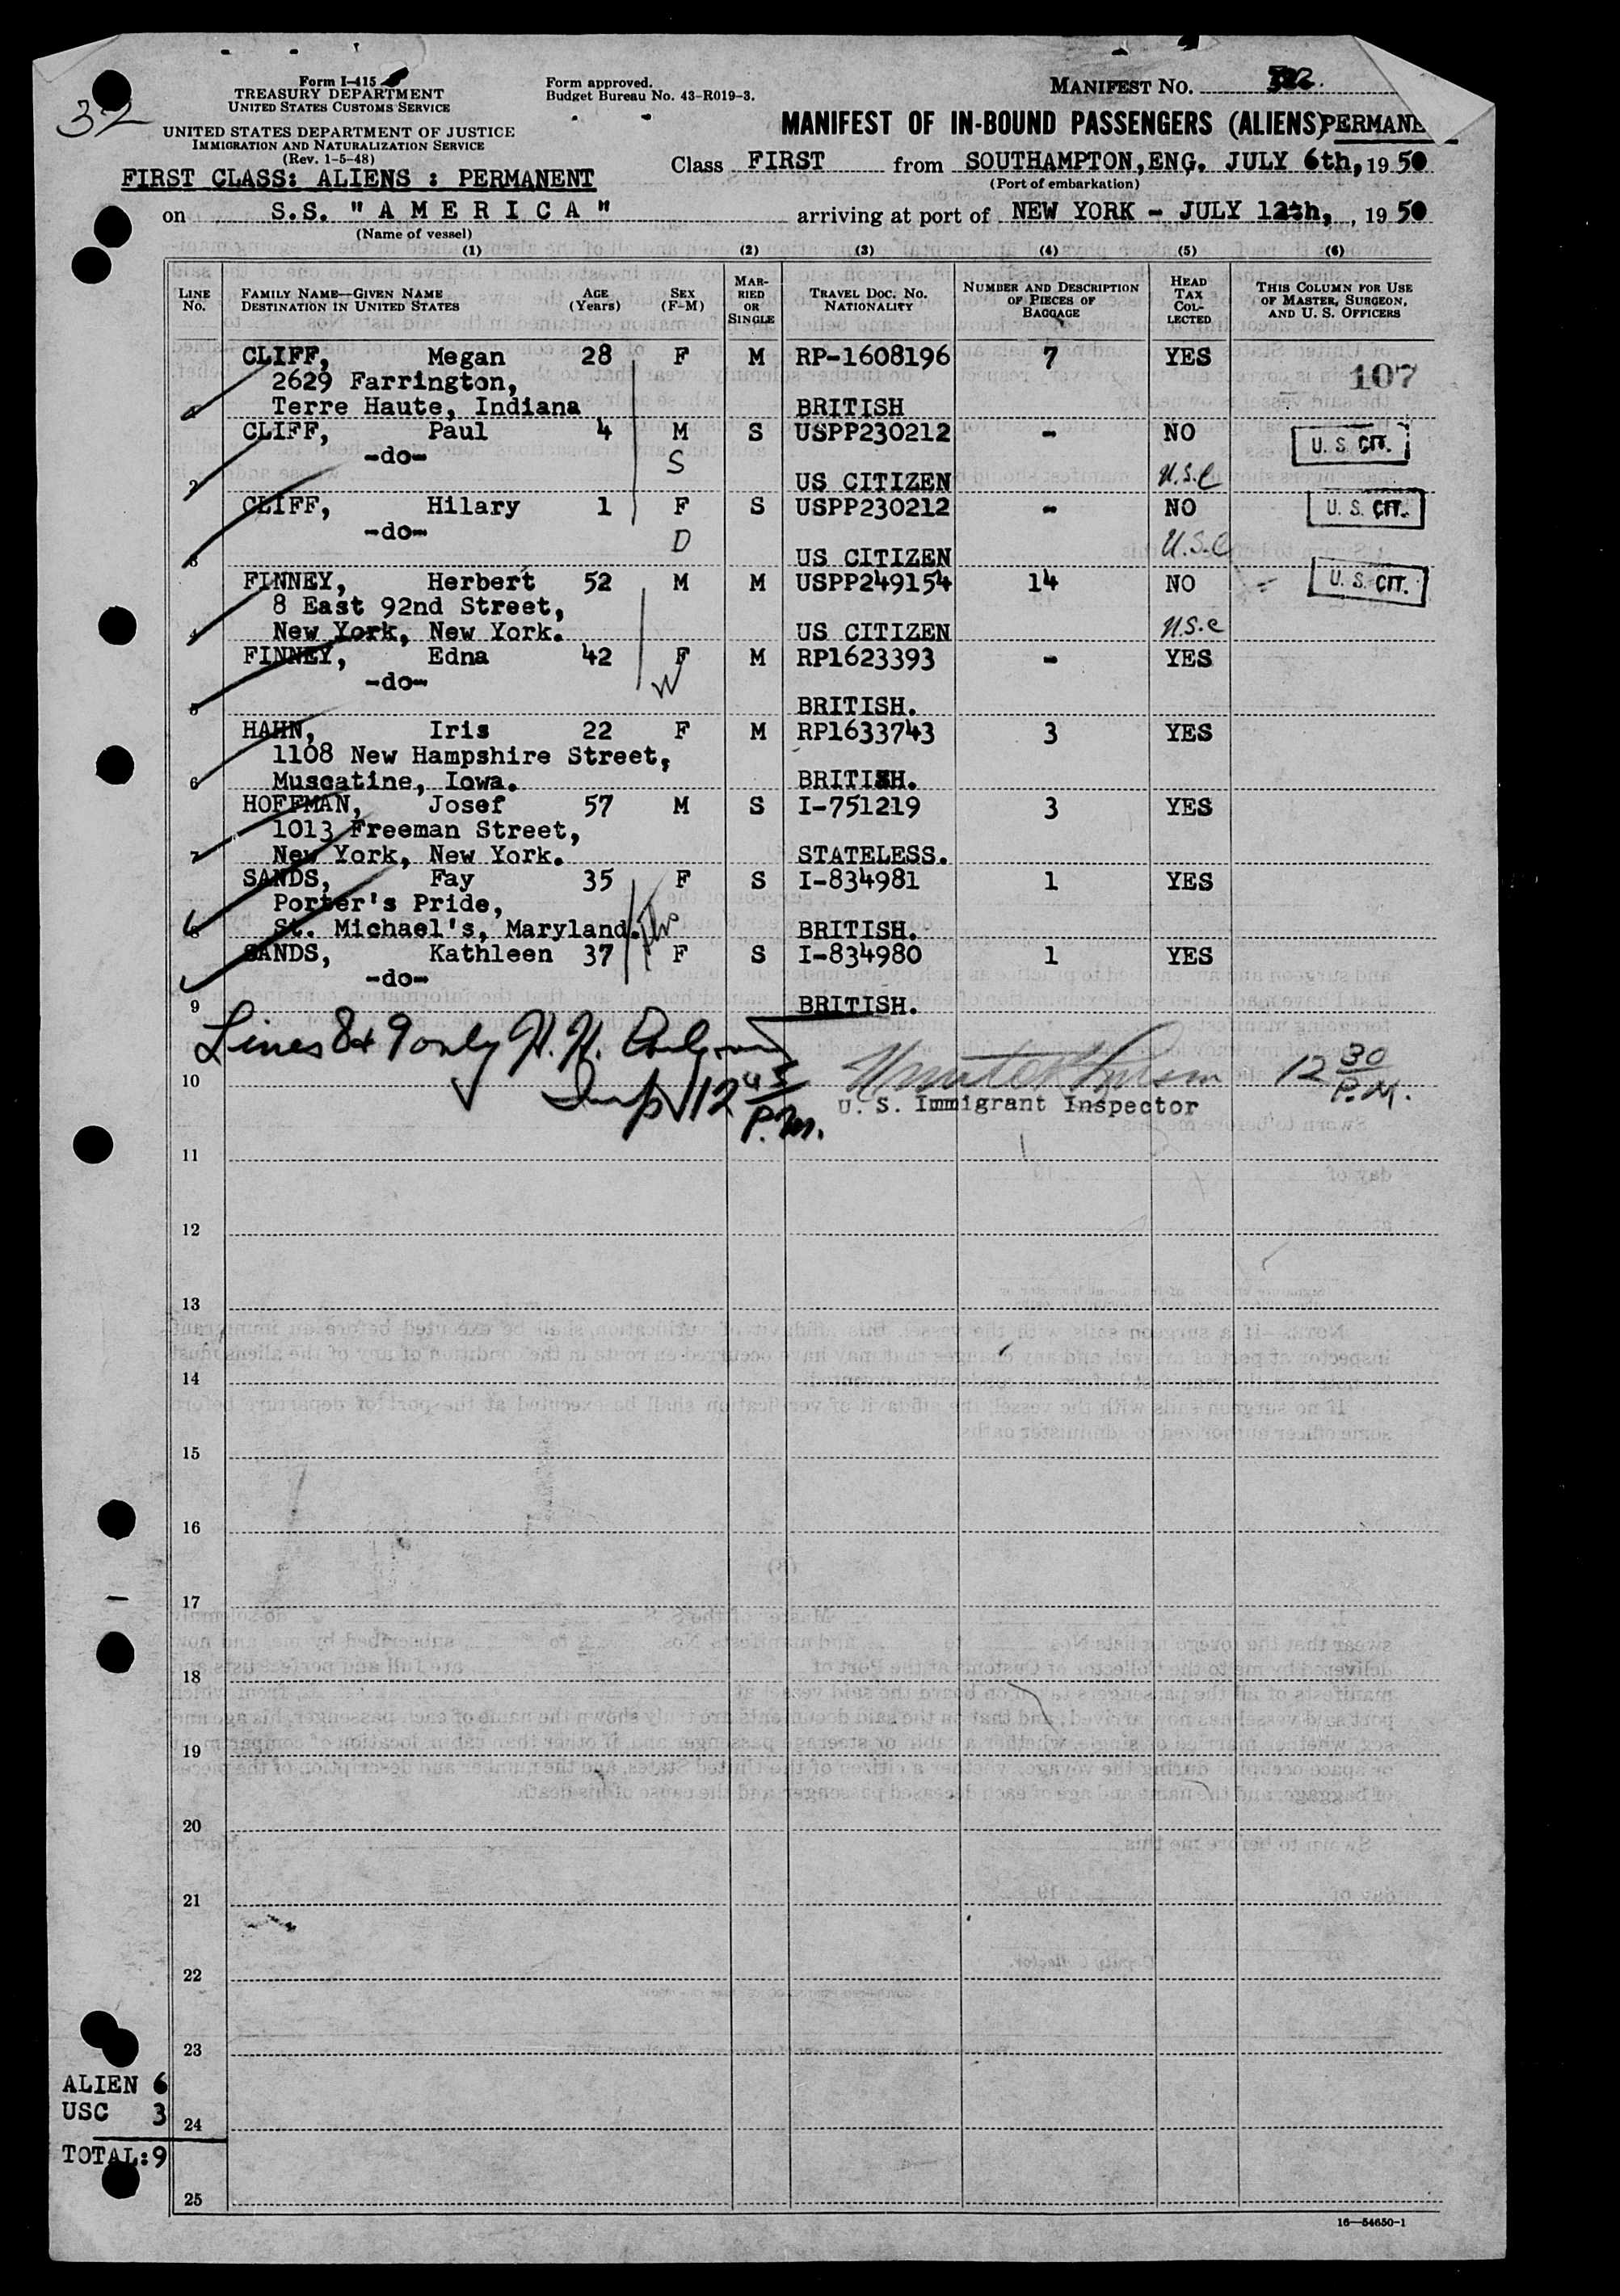 32
Form I-415
TREASURY DEPARTMENT
UNITED STATES CUSTOMS SERVICE
UNITED STATES DEPARTMENT OF JUSTICE
IMMIGRATION AND NATURALIZATION SERVICE
(Rev. 1-5-48)
FIRST CLASS: ALIENS : PERMANENT
Form approved.
Budget Bureau No. 43-R019-3.
MANIFEST NO.
MANIFEST OF IN-BOUND PASSENGERS (ALIENS) PERMANE
Class FIRST from SOUTHAMPTON, ENG. JULY 6th, 1950
(Port of embarkation)
on S.S. "A M E R I C A" arriving at port of NEW YORK - JULY 12th, , 1950
(Name of vessel)
(1) (2) (3) (4) (5) (6)
LINE No. FAMILY NAME—GIVEN NAME DESTINATION IN UNITED STATES AGE (Years) SEX (F-M) MAR-RIED OR SINGLE TRAVEL DOC. NO. NATIONALITY NUMBER AND DESCRIPTION OF PIECES OF BAGGAGE HEAD TAX COL-LECTED THIS COLUMN FOR USE OF MASTER, SURGEON, AND U. S. OFFICERS
CLIFF, Megan 28 F M RP-1608196 7 YES
2629 Farrington, 107
Terre Haute, Indiana BRITISH
CLIFF, Paul 4 M S USPP230212 - NO U. S. CIT.
-do- S
2 US CITIZEN U.S.C
CLIFF, Hilary 1 F S USPP230212 - NO U. S. CIT.
-do- D
3 US CITIZEN U.S.C
FINNEY, Herbert 52 M M USPP249154 14 NO U. S. CIT.
8 East 92nd Street,
4 New York, New York. US CITIZEN U.S.C
FINNEY, Edna 42 F M RP1623393 - YES
-do- W
5 BRITISH.
HAHN, Iris 22 F M RP1633743 3 YES
1108 New Hampshire Street,
6 Muscatine, Iowa. BRITISH.
HOFFMAN, Josef 57 M S I-751219 3 YES
1013 Freeman Street,
7 New York, New York. STATELESS.
SANDS, Fay 35 F S I-834981 1 YES
Porter's Pride,
8 St. Michael's, Maryland. BRITISH.
SANDS, Kathleen 37 F S I-834980 1 YES
-do-
9 BRITISH.
Lines 8 & 9 only H. H.
10 Insp 12 45 P.M. 12 30 P.M.
U. S. Immigrant Inspector
11
12
13
14
15
16
17
18
19
20
21
22
23
24
25
ALIEN 6
USC 3
TOTAL: 9
16—54650-1